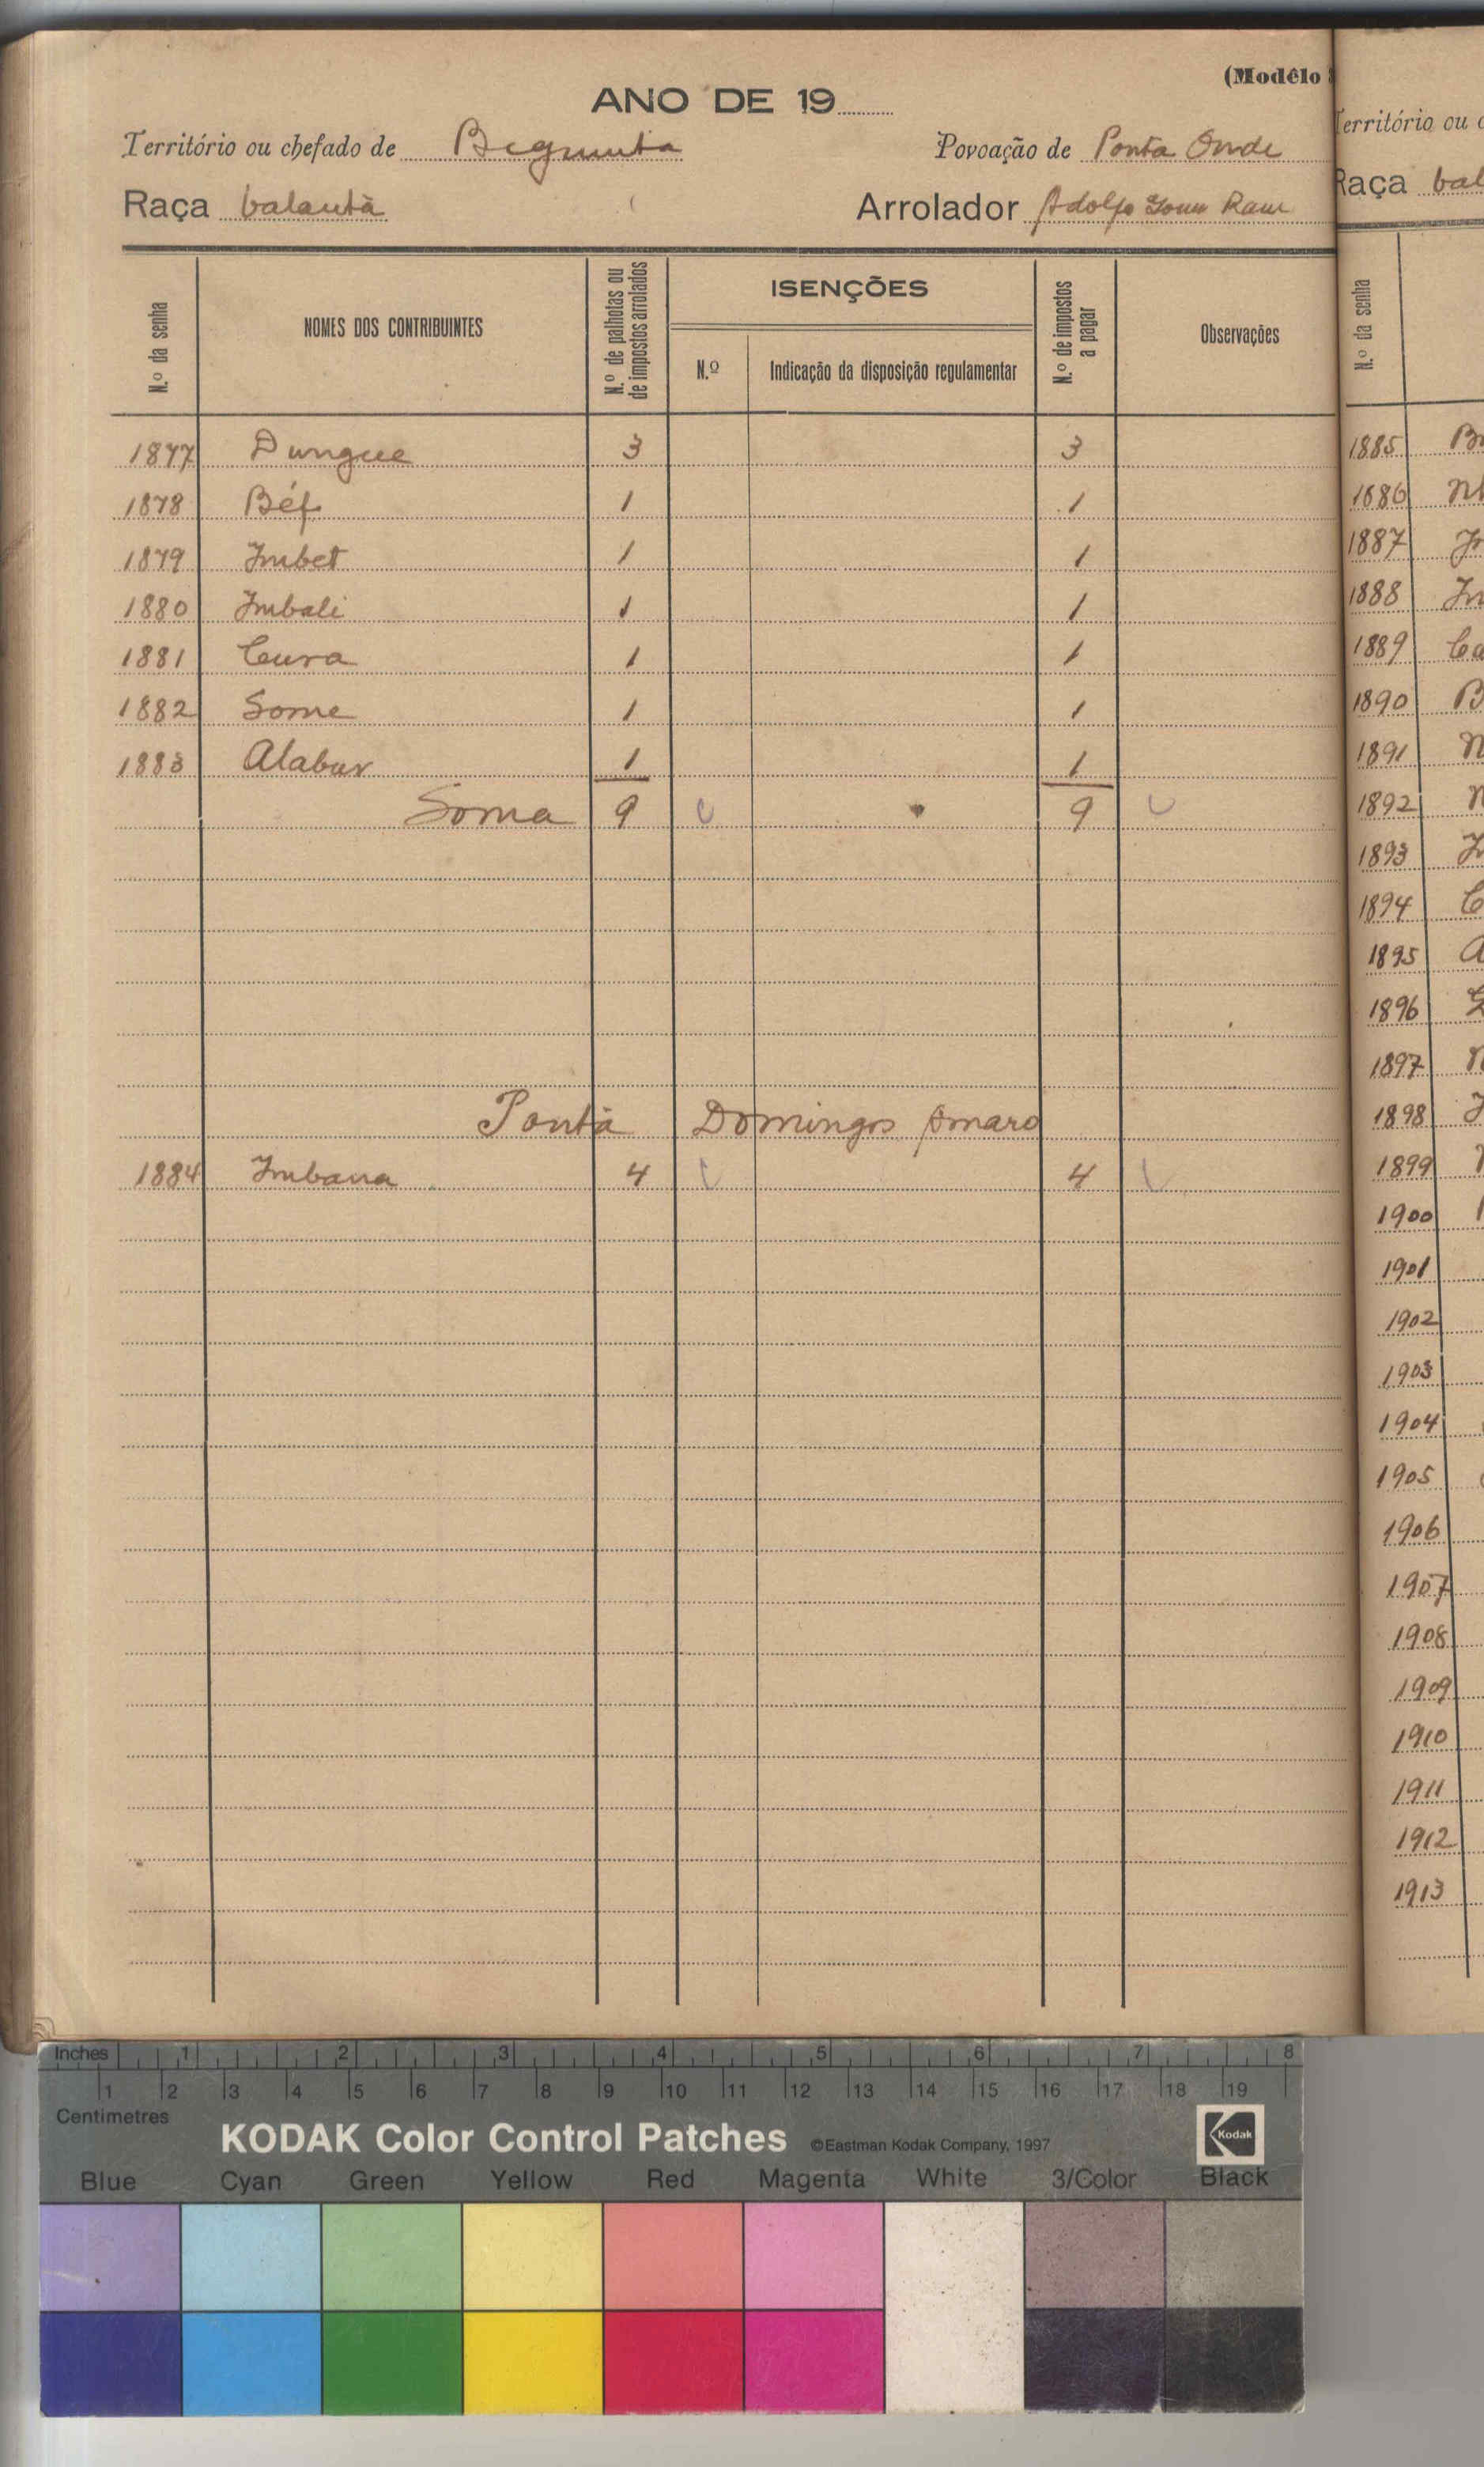 (Modêlo
ANO DE 19
Território ou chefado de Begunta Povoação de Ponta Onde
Raça balanta Arrolador Adolfo
N.º da senha NOMES DOS CONTRIBUINTES N.º de palhotas ou de impostos arrolados ISENÇÕES N.º de impostos a pagar Observações
N.º Indicação da disposição regulamentar
1877 Dungue 3 3
1878 Béf 1 1
1879 Imbet 1 1
1880 Imbali 1 1
1881 Ceura 1 1
1882 Some 1 1
1883 Alabur 1 1
Soma 9 9
Ponta Domingos Amaro
1884 Imbana 4 4
erritório ou c
Raça bal
N.º da senha
1885
1886
1887
1888
1889
1890
1891
1892
1893
1894
1895
1896
1897
1898
1899
1900
1901
1902
1903
1904
1905
1906
1907
1908
1909
1910
1911
1912
1913
Inches 1 2 3 4 5 6 7 8
1 2 3 4 5 6 7 8 9 10 11 12 13 14 15 16 17 18 19
Centimetres
KODAK Color Control Patches ©Eastman Kodak Company, 1997 Kodak
Blue Cyan Green Yellow Red Magenta White 3/Color Black